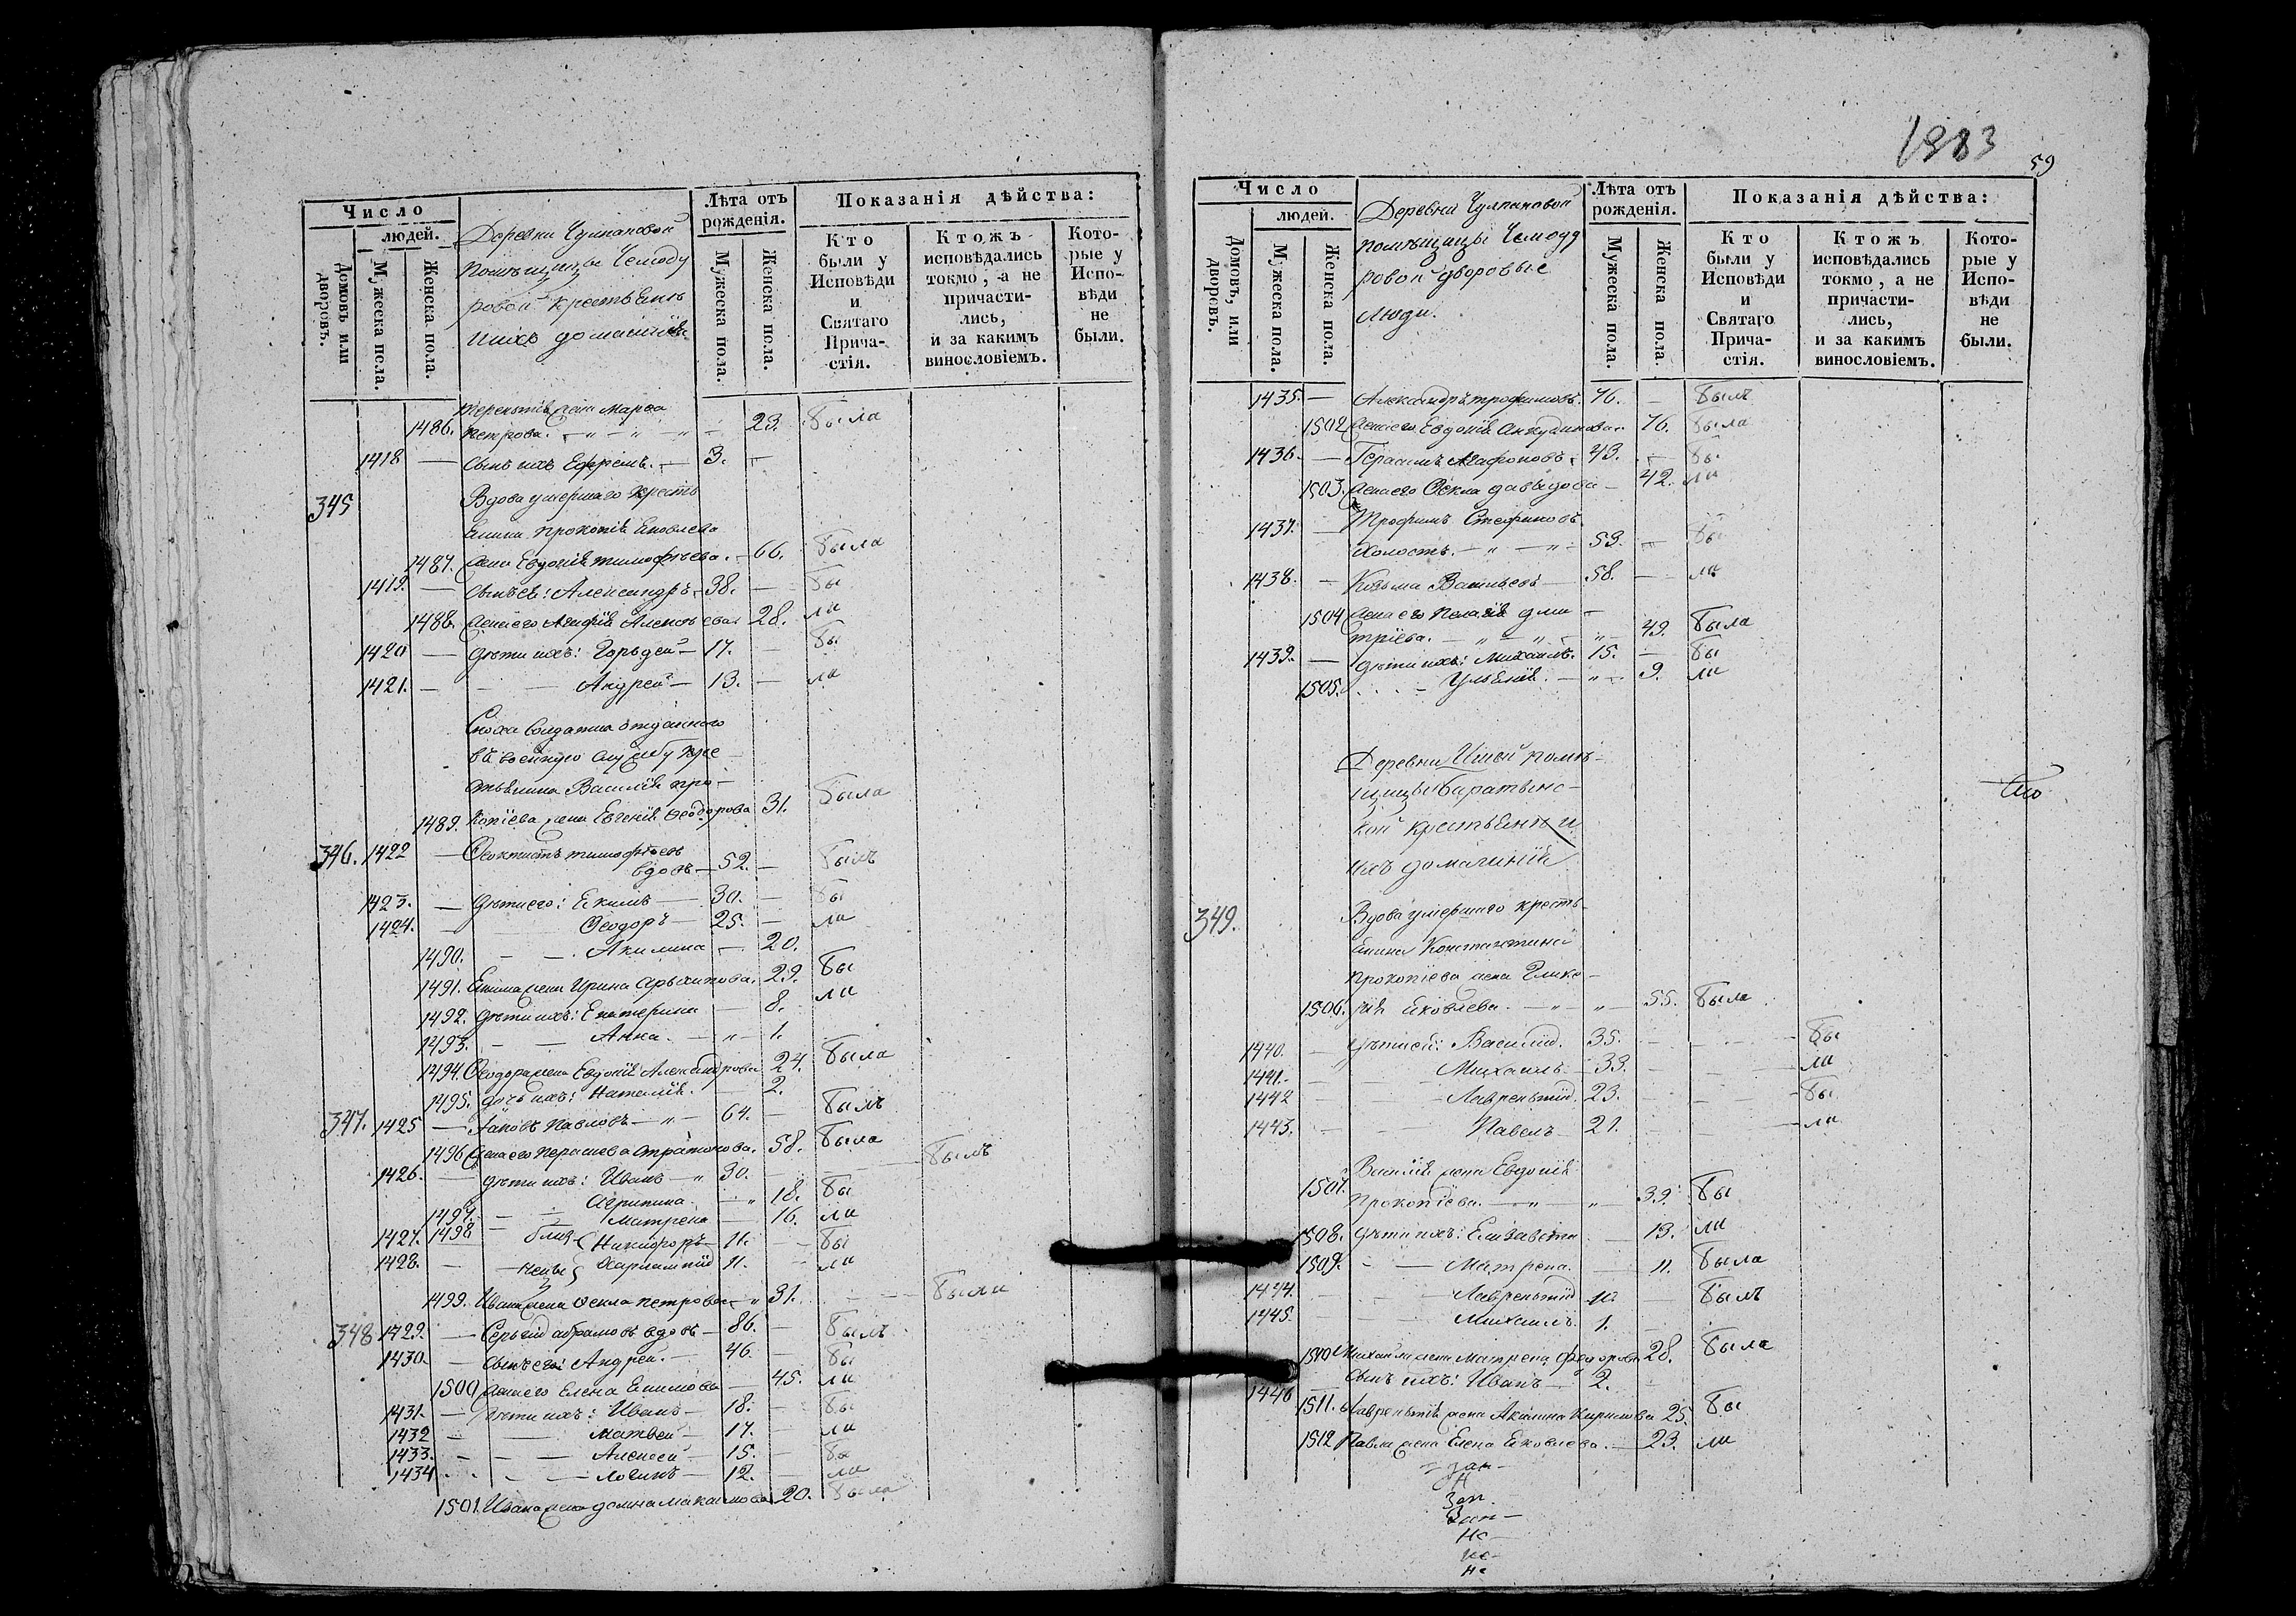 Число
людей.
Домовъ или дворовъ.
Мужеска пола.
Женска пола.
Деревни Чулпановой
помѣщицы Чемоду
ровой крестьяне
ихъ домашніе
Лѣта отъ рожденія.
Мужеска пола.
Женска пола.
Показанія дѣйства:
Кто были у Исповѣди и Святаго Прича-стія.
Ктожъ исповѣдались токмо, а не причасти-лись, и за какимъ винословіемъ.
Кото-рые у Испо-вѣди не были.
Терентія жена Марѳа
1486. Петрова. 23. была
1418 сынъ ихъ Ефремъ. 3.
345 Вдова умершаго кресть
янина Прокопія Яковлева
1487. жена Евдокія Тимоѳѣева. 66. была
1419. сынъ ея: Александръ 38. бы
1488. жена его Агафія Алексѣева 28. ли
1420 дѣти ихъ: Гордѣй 17. бы
1421. Андрей 13. ли
Сноха солдатка отданнаго
въ военную службу кре
стьянина Василія Про
1489. копіева жена Евгенія Ѳеодорова 31. была
346. 1422 Ѳеоктистъ Тимоѳѣевъ
вдовъ 52. былъ
1423. дѣти его: Екимъ 30. бы
1424. Ѳеодоръ 25. ли
1490. Акилина 20.
1491. Екима жена Ирина Архипова. 29. бы
1492. дѣти ихъ: Екатерина 8. ли
1493. Анна. 1.
1494. Ѳеодора жена Евдокія Александрова 24. была
1495. дочь ихъ: Наталія. 2.
347. 1425 Іаковъ Павловъ 64. былъ
1496 жена его Парасева Стратонова. 58. была
1426. дѣти ихъ: Иванъ 30. былъ
1497. Агрипина 18. бы
1498 Матрена 16. ли
1427. близ Никифоръ 11. бы
1428. нецы Харлампій 11. ли
1499. Ивана жена Ѳекла Петрова 31. была
348 1429. Сергій Абрамовъ вдовъ 86. былъ
1430. сынъ его: Андрей. 46. бы
1500 жена его Елена Екимова 45. ли
1431. дѣти ихъ: Иванъ 18. бы
1432 Матвей 17. ли
1433. Алексей 15. бы
1434 Логинъ 12. ли
1501. Ивана жена Домна Максимова 20. была
1983
59
Число
людей.
Домовъ, или дворовъ.
Мужеска пола.
Женска пола.
Деревни Чулпановой
помѣщицы Чемоду
ровой дворовые
люди.
Лѣта отъ рожденія.
Мужеска пола.
Женска пола.
Показанія дѣйства:
Кто были у Исповѣди и Святаго Прича-стія.
Ктожъ исповѣдались токмо, а не причасти-лись, и за какимъ винословіемъ.
Кото-рые у Испо-вѣди не были.
1435. Александръ Трофимовъ. 76. былъ
1502 жена его Евдокія Анкудинова. 76. была
1436. Герасимъ Агафоновъ 43. бы
1503. жена его Ѳекла Давыдова 42. ли
1437. Трофимъ Стефановъ
холостъ. 53. бы
1438. Козьма Васильевъ 58. ли
1504 жена его Пелагія Дми
тріева. 49. была
1439. дѣти ихъ: Михаилъ. 15. бы
1505. Ульянія. 9. ли
Деревни помѣ
щицы Баратынс
кой крестьяне и
ихъ домашнія
349. Вдова умершаго кресть
янина Константина
Прокопіева жена Глике
1506. рія Яковлева. 55. была
1440. дѣти ея: Василій. 35. бы
1441. Михаилъ 33. ли
1442 Лаврентій. 23. бы
1443. Павелъ 21. ли
Василія жена Евдокія
1507. Прокопіева. 39. бы
1508. дѣти ихъ: Елизавета 13. ли
1509. Матрена. 11. была
1444. Лаврентій былъ
1445. Михаилъ. 1.
1510 Михаила жена Матрена Ѳедорова 28. была
1446 сынъ ихъ: Иванъ 2.
1511. Лаврентія жена Акилина Кирилова 25. бы
1512 Павла жена Елена Яковлева. 23. ли